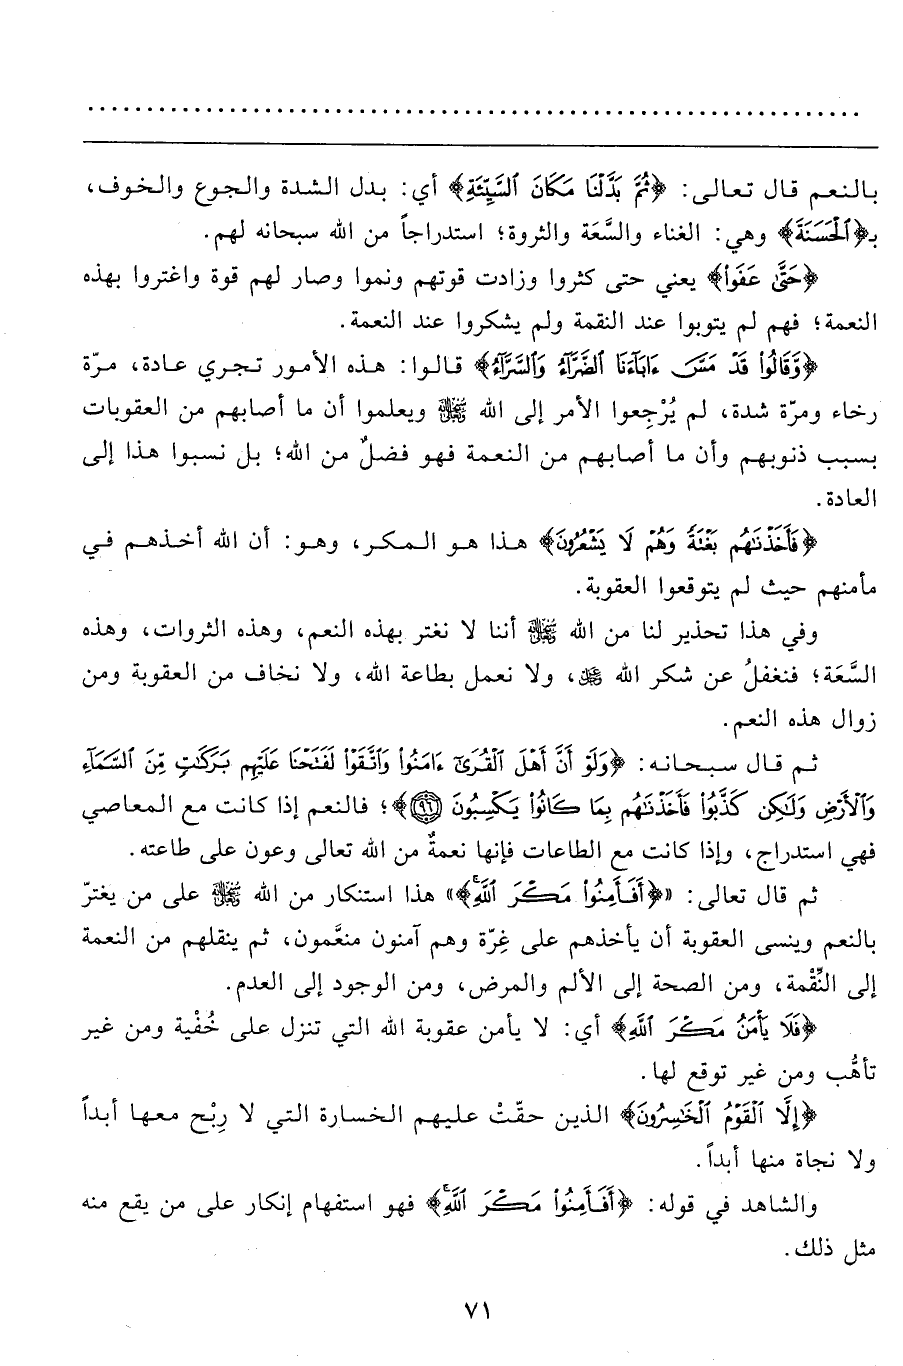 بالنعم قال تعالى: ﴿ثُمَّ بَدَّلْنَا مَكَانَ ٱلسَّيِّئَةِ﴾ أي: بدل الشدة والجوع والخوف،
بـ﴿ٱلْحَسَنَةَ﴾ وهي: الغناء والسَّعَة والثروة؛ استدراجاً من الله سبحانه لهم.
﴿حَتَّىٰ عَفَوا۟﴾ يعني حتى كثروا وزادت قوتهم ونموا وصار لهم قوة واغتروا بهذه
النعمة؛ فهم لم يتوبوا عند النقمة ولم يشكروا عند النعمة.
﴿وَّقَالُوا۟ قَدْ مَسَّ ءَابَآءَنَا ٱلضَّرَّآءُ وَٱلسَّرَّآءُ﴾ قالوا: هذه الأمور تجري عادة، مرّة
رخاء ومرّة شدة، لم يُرْجِعوا الأمر إلى الله ﷻ ويعلموا أن ما أصابهم من العقوبات
بسبب ذنوبهم وأن ما أصابهم من النعمة فهو فضلٌ من الله؛ بل نسبوا هذا إلى
العادة.
﴿فَأَخَذْنَٰهُم بَغْتَةً وَهُمْ لَا يَشْعُرُونَ﴾ هذا هو المكر، وهو: أن الله أخذهم في
مأمنهم حيث لم يتوقعوا العقوبة.
وفي هذا تحذير لنا من الله ﷻ أننا لا نغتر بهذه النعم، وهذه الثروات، وهذه
السَّعَة؛ فنغفلُ عن شكر الله ﷻ، ولا نعمل بطاعة الله، ولا نخاف من العقوبة ومن
زوال هذه النعم.
ثم قال سبحانه: ﴿وَلَوْ أَنَّ أَهْلَ ٱلْقُرَىٰٓ ءَامَنُوا۟ وَٱتَّقَوْا۟ لَفَتَحْنَا عَلَيْهِم بَرَكَٰتٍ مِّنَ ٱلسَّمَآءِ
وَٱلْأَرْضِ وَلَٰكِن كَذَّبُوا۟ فَأَخَذْنَٰهُم بِمَا كَانُوا۟ يَكْسِبُونَ ٩٦﴾؛ فالنعم إذا كانت مع المعاصي
فهي استدراج، وإذا كانت مع الطاعات فإنها نعمةٌ من الله تعالى وعون على طاعته.
ثم قال تعالى: «﴿أَفَأَمِنُوا۟ مَكْرَ ٱللَّهِ﴾» هذا استنكار من الله ﷻ على من يغترّ
بالنعم وينسى العقوبة أن يأخذهم على غِرّة وهم آمنون منعَّمون، ثم ينقلهم من النعمة
إلى النِّقْمة، ومن الصحة إلى الألم والمرض، ومن الوجود إلى العدم.
﴿فَلَا يَأْمَنُ مَكْرَ ٱللَّهِ﴾ أي: لا يأمن عقوبة الله التي تنزل على خُفْية ومن غير
تأهُّب ومن غير توقع لها.
﴿إِلَّا ٱلْقَوْمُ ٱلْخَٰسِرُونَ﴾ الذين حقّتْ عليهم الخسارة التي لا رِبْح معها أبداً
ولا نجاة منها أبداً.
والشاهد في قوله: ﴿أَفَأَمِنُوا۟ مَكْرَ ٱللَّهِ﴾ فهو استفهام إنكار على من يقع منه
مثل ذلك.
٧١